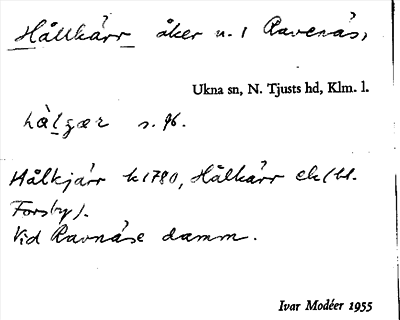 Hålkärr åker n. 1 Ravenäs,
Ukna sn, N. Tjusts hd, Klm. l.
s. 96.
Hålkjärr k 1780, Hålkärr ek (bl.
Forsby).
Vid Ravnäse damm.
Ivar Modéer 1955